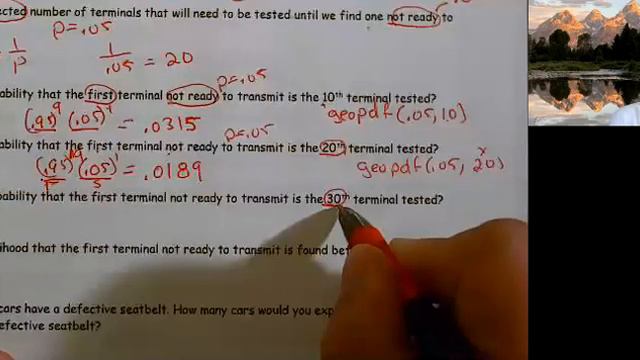 ected number of terminals that will need to be tested until we find one not ready to
p = .05
1/p 1/.05 = 20
p = .05
ability that the first terminal not ready to transmit is the 10th terminal tested?
(.95)^9 (.05)^1 = .0315 geopdf(.05, 10)
p = .05
ability that the first terminal not ready to transmit is the 20th terminal tested?
(.95)^19 (.05)^1 = .0189 geopdf(.05, 20) x
F S
obability that the first terminal not ready to transmit is the 30th terminal tested?
lihood that the first terminal not ready to transmit is found bet
cars have a defective seatbelt. How many cars would you exp
efective seatbelt?